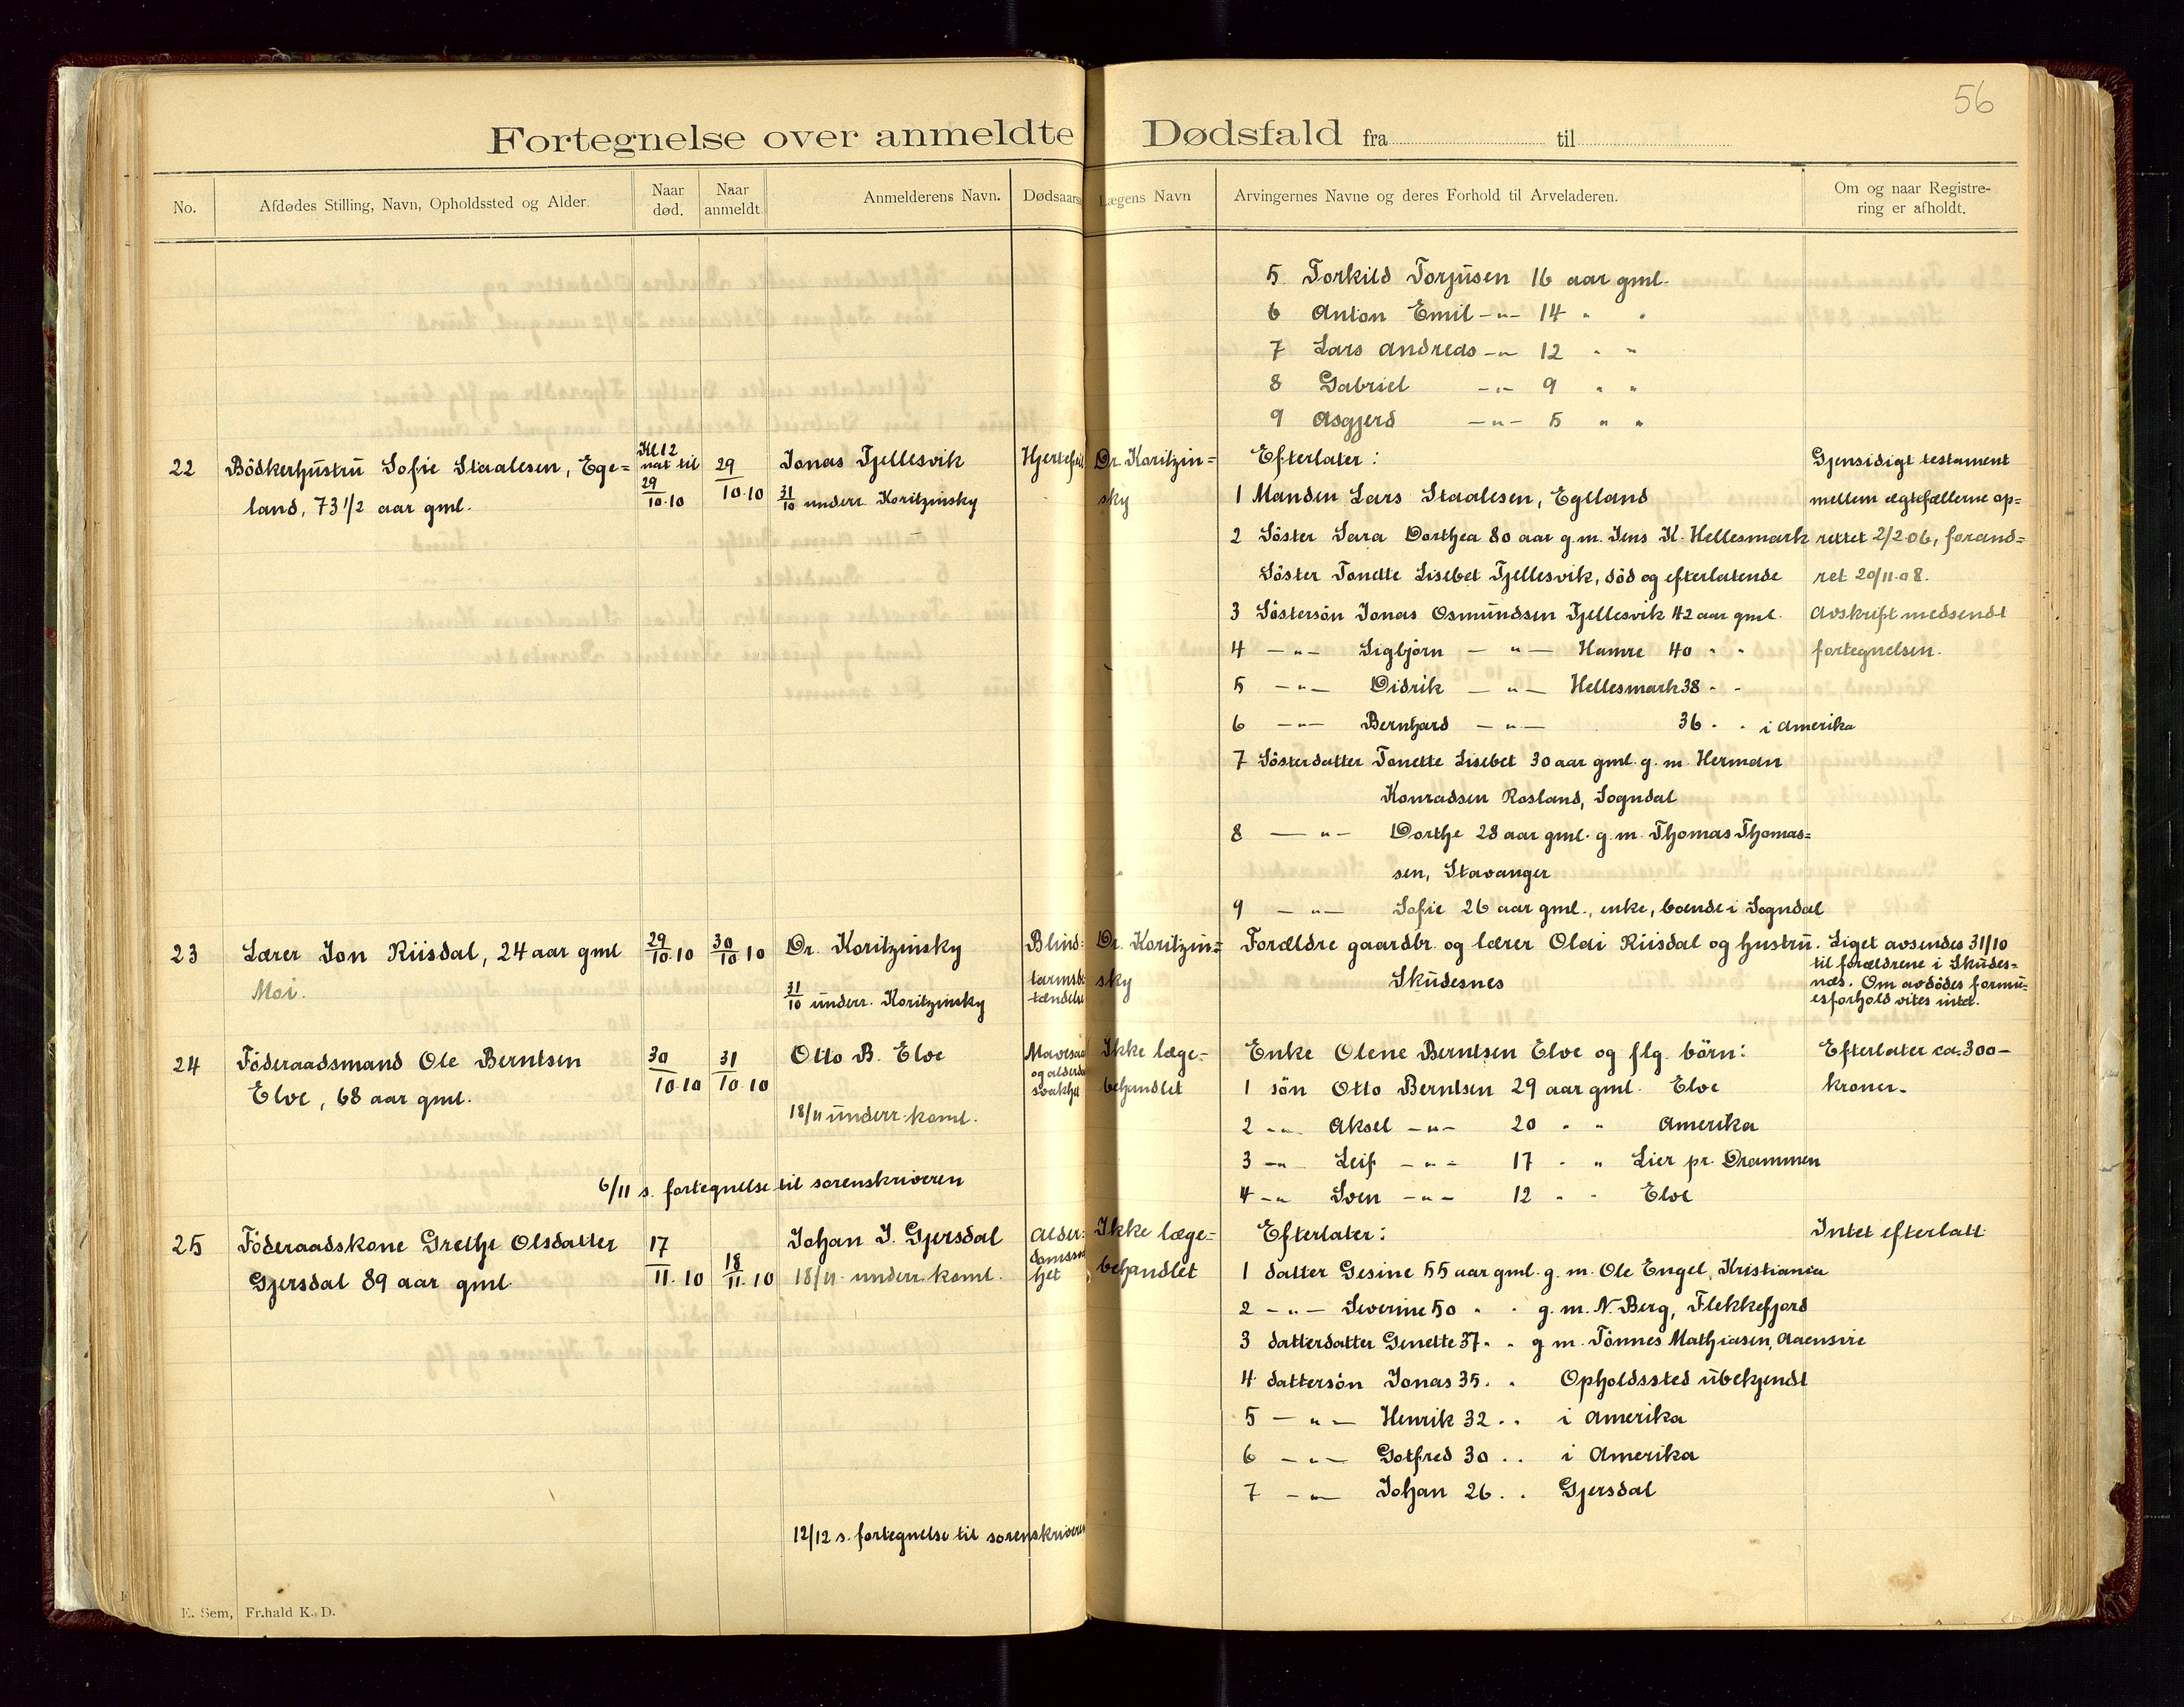 56
Fortegnelse over anmeldte Dødsfald fra til
No. Afdødes Stilling, Navn, Opholdssted og Alder. Naar død. Naar anmeldt. Anmelderens Navn. Dødsaars Lægens Navn Arvingernes Navne og deres Forhold til Arveladeren. Om og naar Registrering er afholdt.
5. Torkild Torjusen 16 aar gml.
6 Anton Emil -"- 14 " "
7 Lars Andreas -"- 12 " "
8 Gabriel -"- 9 " "
9 Asgjerd -"- 5 " "
22 Bödkerhustru Sofie Staalesen, Ege=
land, 73 1/2 aar gml.
Kl 12
nat til
29/10.10
29/10.10
Jonas Tjellesvik
31/10 underr. Koritzinsky
Hjertefeil
Dr. Koritzin=
sky
Efterlater:
1 Manden Lars Staalesen, Egeland
2 Söster Sara Dorthea 80 aar g.m. Jens K. Hellesmark
Söster Tonette Lisebet Tjellesvik, död og efterlatende
3 Söstersön Jonas Osmundsen Tjellesvik 42 aar gml.
4 -"- Sigbjørn -"- Hamre 40 " "
5 -"- Didrik -"- Hellesmark 38 " "
6 -"- Bernhard -"- 36 " " i Amerika
7 Sösterdatter Tonette Lisebet 30 aar gml. g. m. Herman
Konradsen Rosland, Sogndal
8 -"- Dorthe 28 aar gml. g. m. Thomas Thomas=
sen, Stavanger
9 -"- Sofie 26 aar gml., enke, boende i Sogndal
Gjensidigt testament
mellem ægtefællerne op=
rettet 2/2.06, forand=
ret 20/11.08.
Avskrift medsendt
fortegnelsen.
23 Lærer Jon Riisdal, 24 aar gml
Moi.
29/10.10
30/10 10
Dr. Koritzinsky
31/10 underr. Koritzinsky
Blind=
tarmsbe
tændelse
Dr. Koritzin=
sky
Forældre gaardbr. og lærer Olai Riisdal og hustru.
Skudesnes
Liget avsendes 31/10
til forældrene i Skudes=
nes. Om avdödes formu=
esforhold vites intet.
24 Föderaadsmand Ole Berntsen
Elve, 68 aar gml.
30/10.10
31/10.10
Otto B. Elve
18/11 underr. koml.
Mavesaar
og alderdom
svakhet
Ikke læge=
behandlet
Enke Olene Berntsen Elve og flg. börn:
1 sön Otto Berntsen 29 aar gml. Elve
2 -"- Aksel -"- 20 " " Amerika
3 -"- Leif -"- 17 " " Lier pr. Drammen
4 -"- Sven -"- 12 " " Elve
Efterlater ca. 300-
kroner-
6/11 s. fortegnelse til sorenskriveren
25 Föderaadskone Grethe Olsdatter
Gjersdal 89 aar gml.
17/11.10
18/11.10
Johan J. Gjersdal
18/11 underr. koml.
Alder=
domssvak
het
Ikke læge=
behandlet
Efterlater:
1 datter Gesine 55 aar gml. g. m. Ole Engel, Kristiania
2 -"- Severine 50 " " g. m. N. Berg, Flekkefjord
3 datterdatter Genette 37 " " g m. Tönnes Mathiasen, Aaensire
4 dattersön Jonas 35 " " Opholdssted ubekjendt
5 -"- Henrik 32 " " i Amerika
6 -"- Gotfred 30 " " i Amerika
7 -"- Johan 26 " " Gjersdal
Intet efterlatt
12/12 s. fortegnelse til sorenskriveren
E. Sem, Fr.hald K. D.